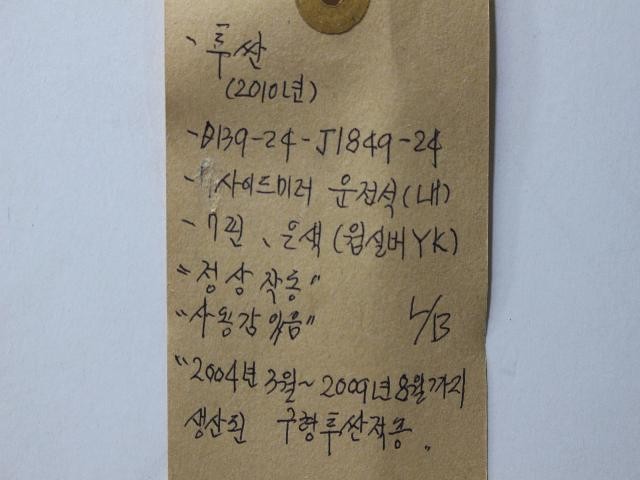 - 투싼
(2010년)
- D139-24-J1849-24
- 사이드미러 운전석(내)
- 7핀、은색(웜실버YK)
"정상작동"
"사용감있음" L/B
"2004년 3월~2009년8월까지
생산된 구형투싼작동"